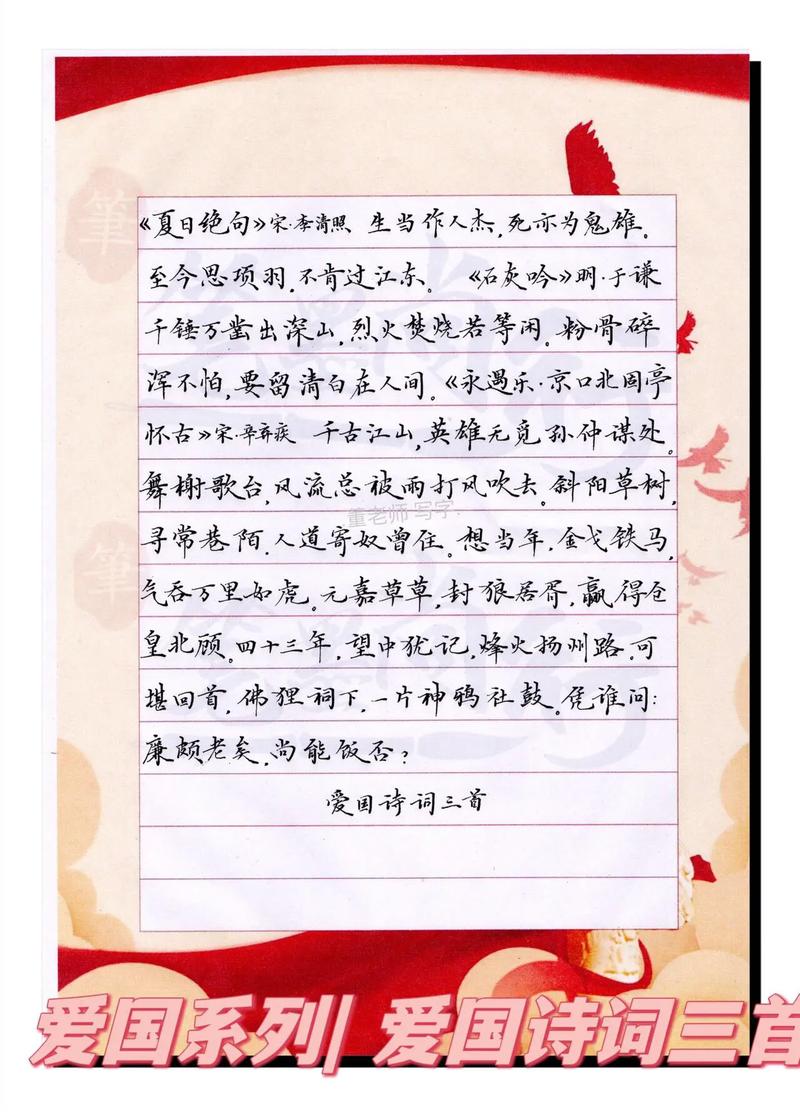 《夏日绝句》宋·李清照 生当作人杰,死亦为鬼雄。
至今思项羽,不肯过江东。 《石灰吟》明·于谦
千锤万凿出深山,烈火焚烧若等闲。粉骨碎
浑不怕,要留清白在人间。《永遇乐·京口北固亭
怀古》宋·辛弃疾 千古江山,英雄无觅孙仲谋处。
舞榭歌台,风流总被雨打风吹去。斜阳草树,
寻常巷陌,人道寄奴曾住。想当年,金戈铁马,
气吞万里如虎。元嘉草草,封狼居胥,赢得仓
皇北顾。四十三年,望中犹记,烽火扬州路。可
堪回首,佛狸祠下,一片神鸦社鼓。凭谁问:
廉颇老矣,尚能饭否?
爱国诗词三首
董老师 写字.
筆
筆
爱国系列| 爱国诗词三首